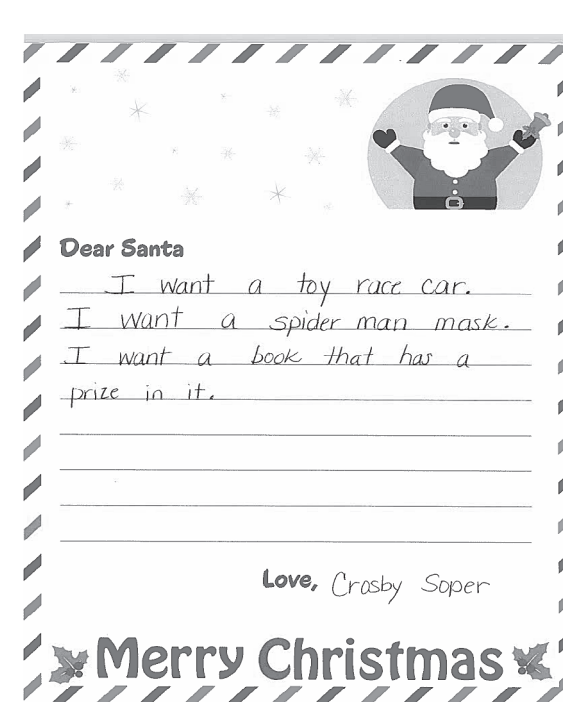 Dear Santa
I want a toy race car.
I want a spider man mask.
I want a book that has a
prize in it.
Love, Crosby Soper
Merry Christmas